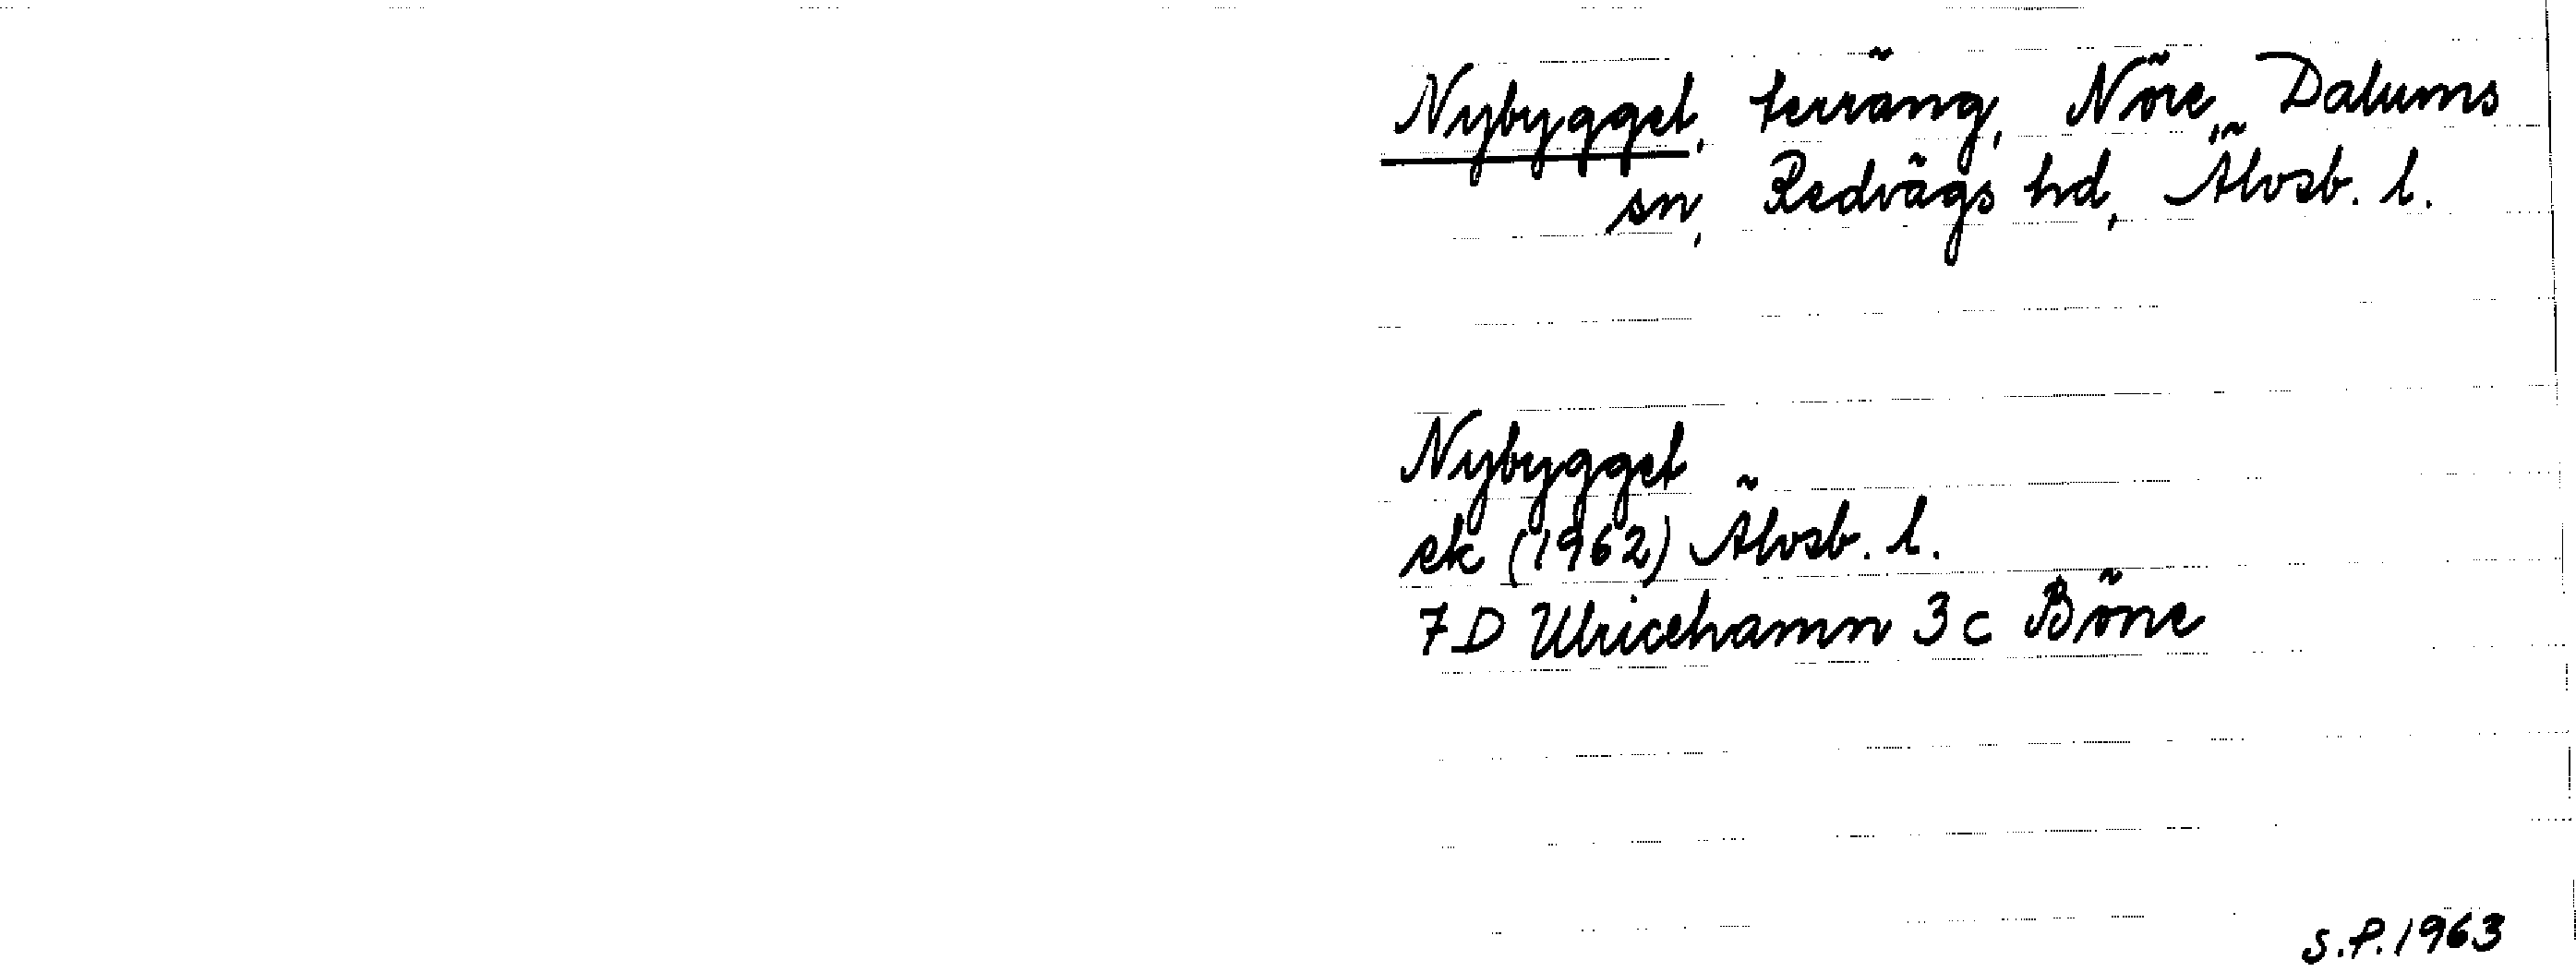 Nybygget, terräng, Nöre, Dalums
sn, Redvägs hd, Älvsb. l.
Nybygget
ek (1962) Älvsb. l.
7D Ulricehamn 3 c Böne
S.P. 1963